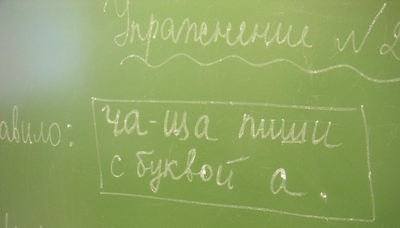 Упражнение № 2
авило:
ча-ща пиши
с буквой а.